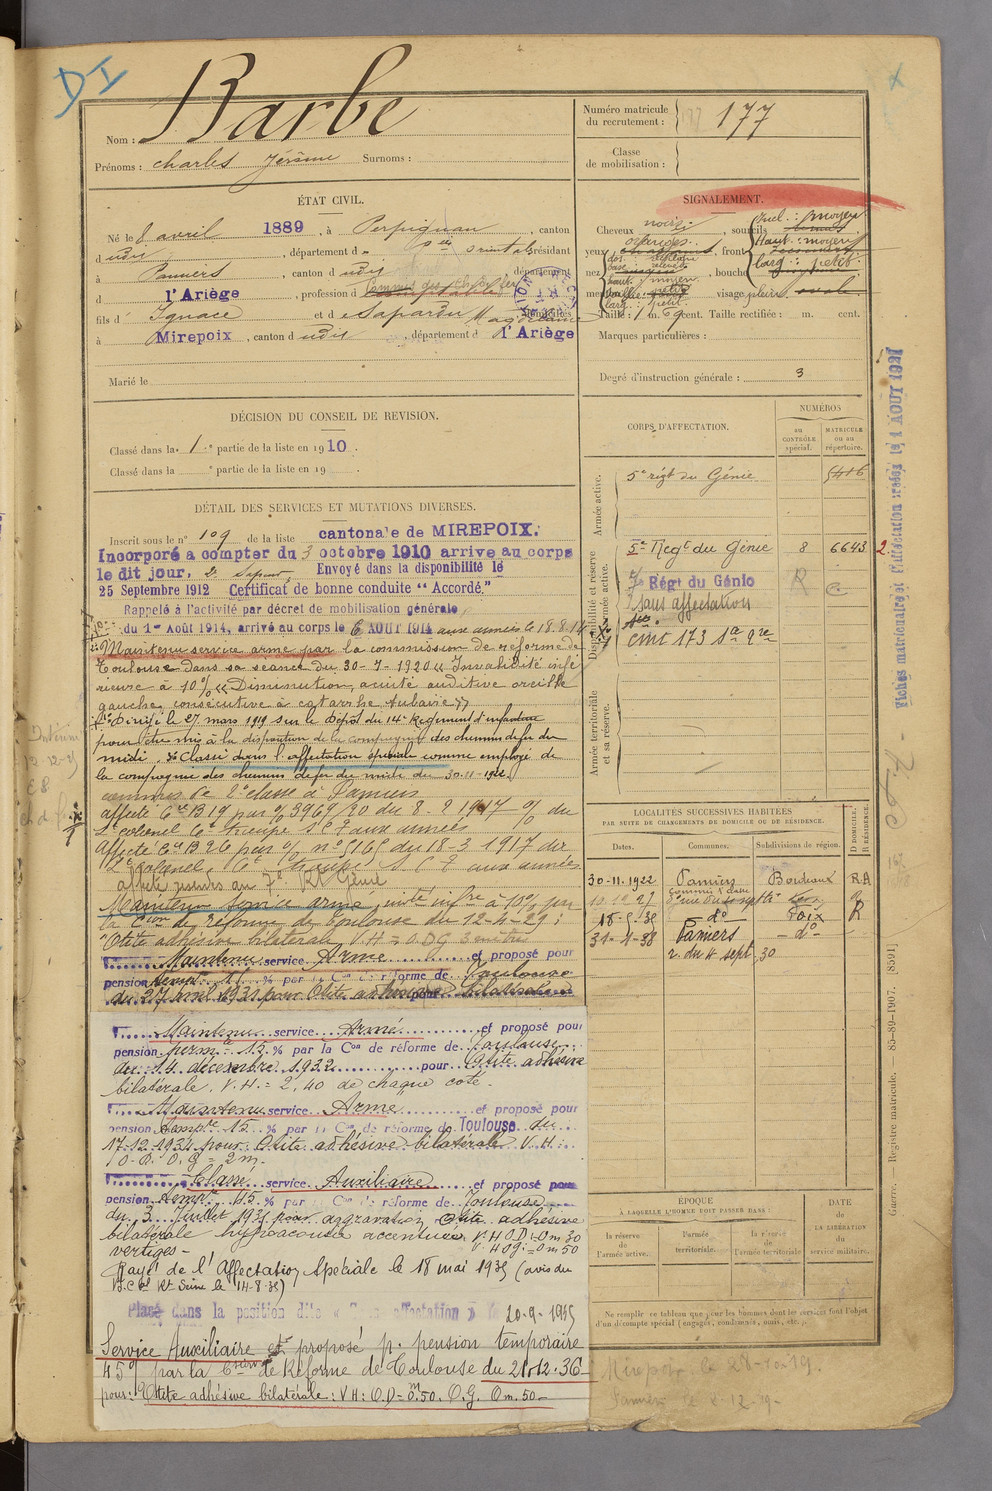 D I
Nom : Barbe
Prénoms : Charles Jérôme Surnoms :
Numéro matricule du recrutement : 177
Classe de mobilisation :
ÉTAT CIVIL.
Né le 8 avril 1889, à Perpignan, canton
dudit, département des Pées orientales résidant
à Pamiers, canton dudit, département
d l'Ariège, profession de
fils d' Ignace et de Sapardu Magdelaine domiciliés
à Mirepoix, canton dudit, département d l'Ariège
Marié le
SIGNALEMENT.
Cheveux noirs, sourcils
yeux, front
nez, bouche
visage plein ovale
Taille : 1 m. 69 cent. Taille rectifiée : m. cent.
Marques particulières :
Degré d'instruction générale : 3
DÉCISION DU CONSEIL DE REVISION.
Classé dans la 1re partie de la liste en 1910.
Classé dans la e partie de la liste en 19 .
DÉTAIL DES SERVICES ET MUTATIONS DIVERSES.
Inscrit sous le n° 109 de la liste cantonale de MIREPOIX.
Incorporé a compter du 3 octobre 1910 arrive au corps
le dit jour, 2e Sapeur, Envoyé dans la disponibilité le
25 Septembre 1912 Certificat de bonne conduite "Accordé."
Rappelé à l'activité par décret de mobilisation générale
du 1er Août 1914, arrivé au corps le 6 AOUT 1914 aux armées le 18.8.14
Maintenu service armé par la commission de réforme de
Toulouse dans sa séance du 30-7-1920 « Invalidité infé
rieure à 10% « Diminution acuité auditive oreille
gauche, consécutive à catarrhe tubaire »
Dirigé le 27 mars 1919 sur le Dépôt du 14e Régiment d'infanterie
pour être mis à la disposition de la compagnie des chemins de fer du
midi. Classé dans l'affectation spéciale comme employé de
la compagnie des chemins de fer du midi du 30-11-1922
commis de 2e classe à Pamiers
affecté Cie B19 par % 3969/20 du 8-2 1917 % du
Lt colonel Ct troupe S C F aux armées
Affecté Cie B26 par % n° 5165 du 18-3 1917 du
Lt Colonel Ct troupe S C F aux armées
affecté au 7e Rt Génie
Maintenu service armé, invté infre à 10% par
la Con de réforme de Toulouse du 12-4-29 :
"Otite adhésive bilatérale V.H = O.D G 3 mètres
Maintenu service Armé et proposé pour
pension % par la Con de réforme de Toulouse
du 27 avril 1931 pour Otite adhésive bilatérale
Maintenu service Armé et proposé pour
pension permte 15 % par la Con de réforme de Toulouse
du 14 décembre 1932 pour Otite adhésive
bilatérale. V.H = 2,40 de chaque côté.
Maintenu service Armé et proposé pour
pension tempre 15 % par la Con de réforme de Toulouse du
17.12.1934 pour Otite adhésive bilatérale V.H :
O.D. O.G = 2 m.
Classé service Auxiliaire et proposé pour
pension tempre 15 % par la Con de réforme de Toulouse
du 3 Juillet 1935 pour aggravation Otite adhésive
bilatérale hypoacousie accentuée V.H O.D : 0m 30
V. H O G : 0m 50
vertiges -
Rayé de l'Affectation Spéciale le 18 mai 1935 (avis du
B.C. Rt Seine le 14-8-35)
Placé dans la position dite « Sans affectation » le 20-9-1935
Service Auxiliaire et proposé p. pension temporaire
45% par la Con de Réforme de Toulouse du 21.12.36
pour : Otite adhésive bilatérale : V.H : O.D = 0m.50. O.G. 0m.50-
CORPS D'AFFECTATION.
NUMÉROS
au CONTRÔLE spécial.
MATRICULE ou au répertoire.
Armée active.
5e régt du Génie 5416
Disponibilité et réserve de l'armée active.
5e Regt du Génie 8 6643
7e Régt du Génie
sans affectation
cmt 173
Armée territoriale et sa réserve.
LOCALITÉS SUCCESSIVES HABITÉES
PAR SUITE DE CHANGEMENTS DE DOMICILE OU DE RÉSIDENCE.
Dates. Communes. Subdivisions de région. D DOMICILE. R RÉSIDENCE.
30-11-1922 Pamiers Bordeaux R.A
10.12 27
18-5-35 do Foix R
31-4-38 Pamiers - do -
r. du 4 sept 30
ÉPOQUE
À LAQUELLE L'HOMME DOIT PASSER DANS :
la réserve de l'armée active.
l'armée territoriale.
la réserve de l'armée territoriale
DATE de LA LIBÉRATION du service militaire.
Ne remplir ce tableau que pour les hommes dont les services font l'objet
d'un décompte spécial (engagés, condamnés, omis, etc.,
Mirepoix le 28-10-19.
Pamiers le 12-19-
Fiches matricules et d'affectation créées le 1 AOUT 1921
Guerre. — Registre matricule. — 85-89-1907. [8591]